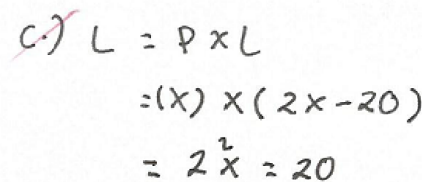 c.) L = P x L
=(x) x (2x-20)
= 2x² = 20